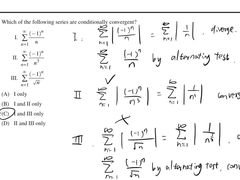 Which of the following series are conditionally convergent?
I. ∞ Σ n=1 (-1)^n / n
II. ∞ Σ n=1 (-1)^n / n^3
III. ∞ Σ n=1 (-1)^n / √n
(A) I only
(B) I and II only
(C) I and III only
(D) II and III only
I. ∞ Σ n=1 |(-1)^n / n| = ∞ Σ n=1 |1/n| . diverge.
∞ Σ n=1 (-1)^n / n by alternating test.
II ∞ Σ n=1 |(-1)^n / n^3| = ∞ Σ n=1 |1/n^3| convers
III. ∞ Σ n=1 |(-1)^n / √n| = ∞ Σ n=1
∞ Σ n=1 (-1)^n / √n by alternating test, con